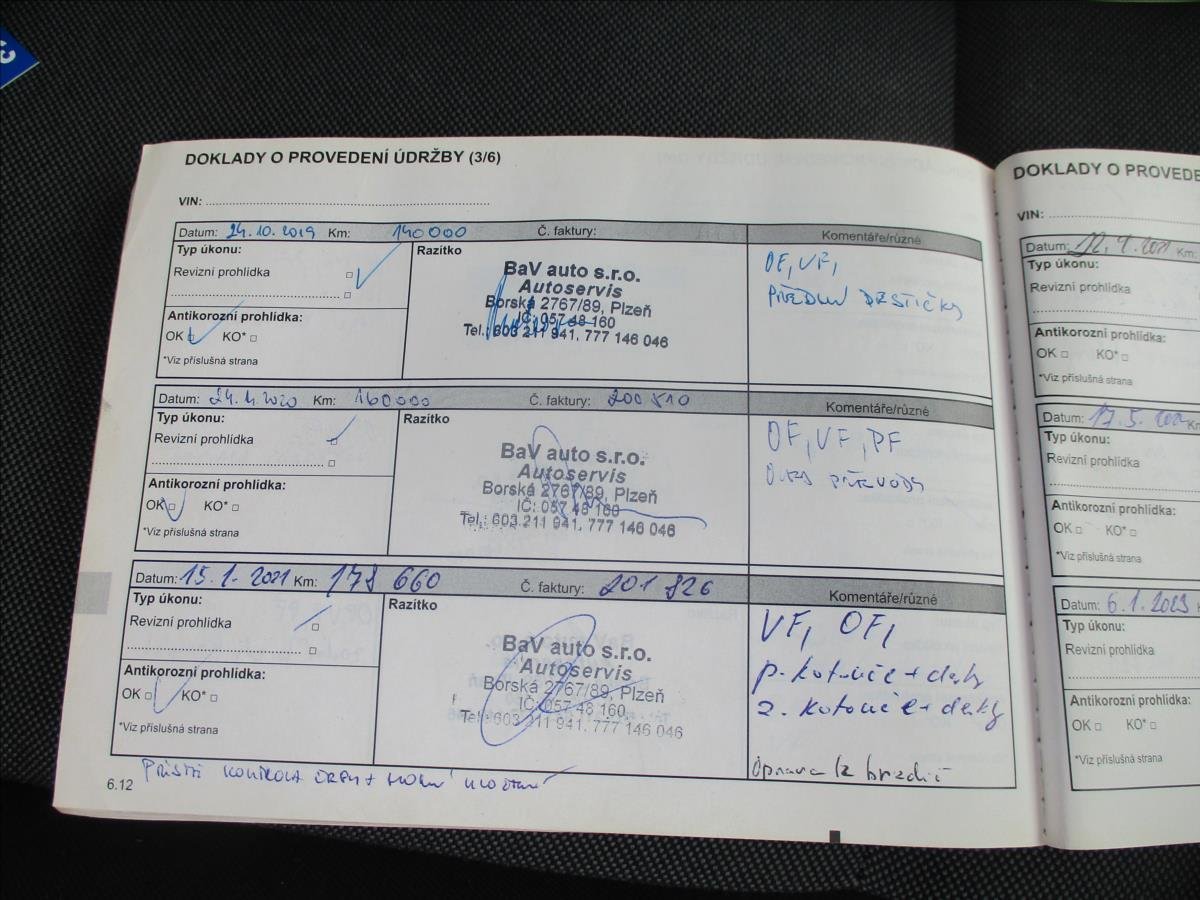 DOKLADY O PROVEDENÍ ÚDRŽBY (3/6)
VIN:
Datum: 24.10.2019 Km: 140000 Č. faktury:
Komentáře/různé
Typ úkonu:
Revizní prohlídka
Antikorozní prohlídka:
OK KO*
*Viz příslušná strana
Razítko
BaV auto s.r.o.
Autoservis
Borská 2767/89, Plzeň
IČ: 057 48 160
Tel.: 603 211 941, 777 146 046
OF, VF,
PŘEDNÍ DESTIČKY
Datum: 24.4.2020 Km: 160000 Č. faktury: 200510
Komentáře/různé
Typ úkonu:
Revizní prohlídka
Antikorozní prohlídka:
OK KO*
*Viz příslušná strana
Razítko
BaV auto s.r.o.
Autoservis
Borská 2767/89, Plzeň
IČ: 057 48 160
Tel.: 603 211 941, 777 146 046
OF, VF, PF
OLEJ PŘEVODY
Datum: 15.1.2021 Km: 178 660 Č. faktury: 201826
Komentáře/různé
Typ úkonu:
Revizní prohlídka
Antikorozní prohlídka:
OK KO*
*Viz příslušná strana
Razítko
BaV auto s.r.o.
Autoservis
Borská 2767/89, Plzeň
IČ: 057 48 160
Tel.: 603 211 941, 777 146 046
VF, OF,
p. kotouče + desky
z. kotouče + desky
Oprava Iz brzdič
PŘÍŠTĚ KONTROLA
6.12
DOKLADY O PROVEDE
VIN:
Datum: Km:
Typ úkonu:
Revizní prohlídka
Antikorozní prohlídka:
OK KO*
*Viz příslušná strana
Datum: 17.5. Km
Typ úkonu:
Revizní prohlídka
Antikorozní prohlídka:
OK KO*
*Viz příslušná strana
Datum: 6.1.2023
Typ úkonu:
Revizní prohlídka
Antikorozní prohlídka:
OK KO*
*Viz příslušná strana